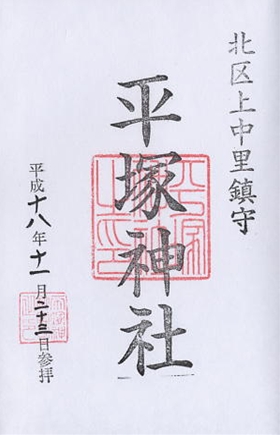 北区上中里鎮守
平塚神社
平成十八年十一月二十三日参拝